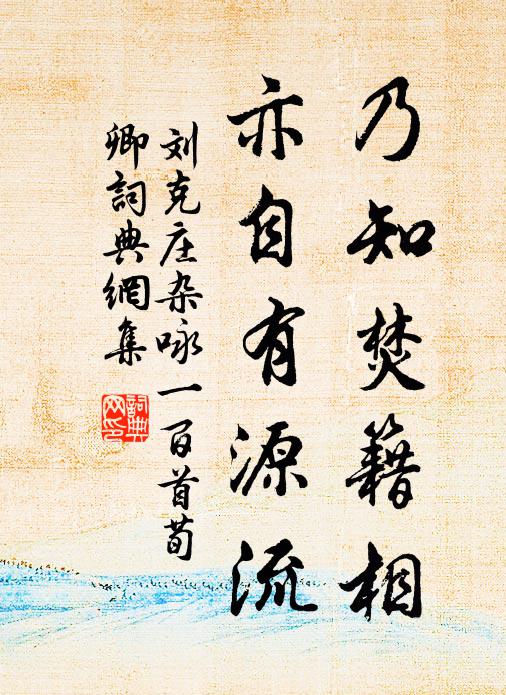 乃知焚籍相
亦自有源流
刘克庄杂咏一百首荀
卿詞典網集